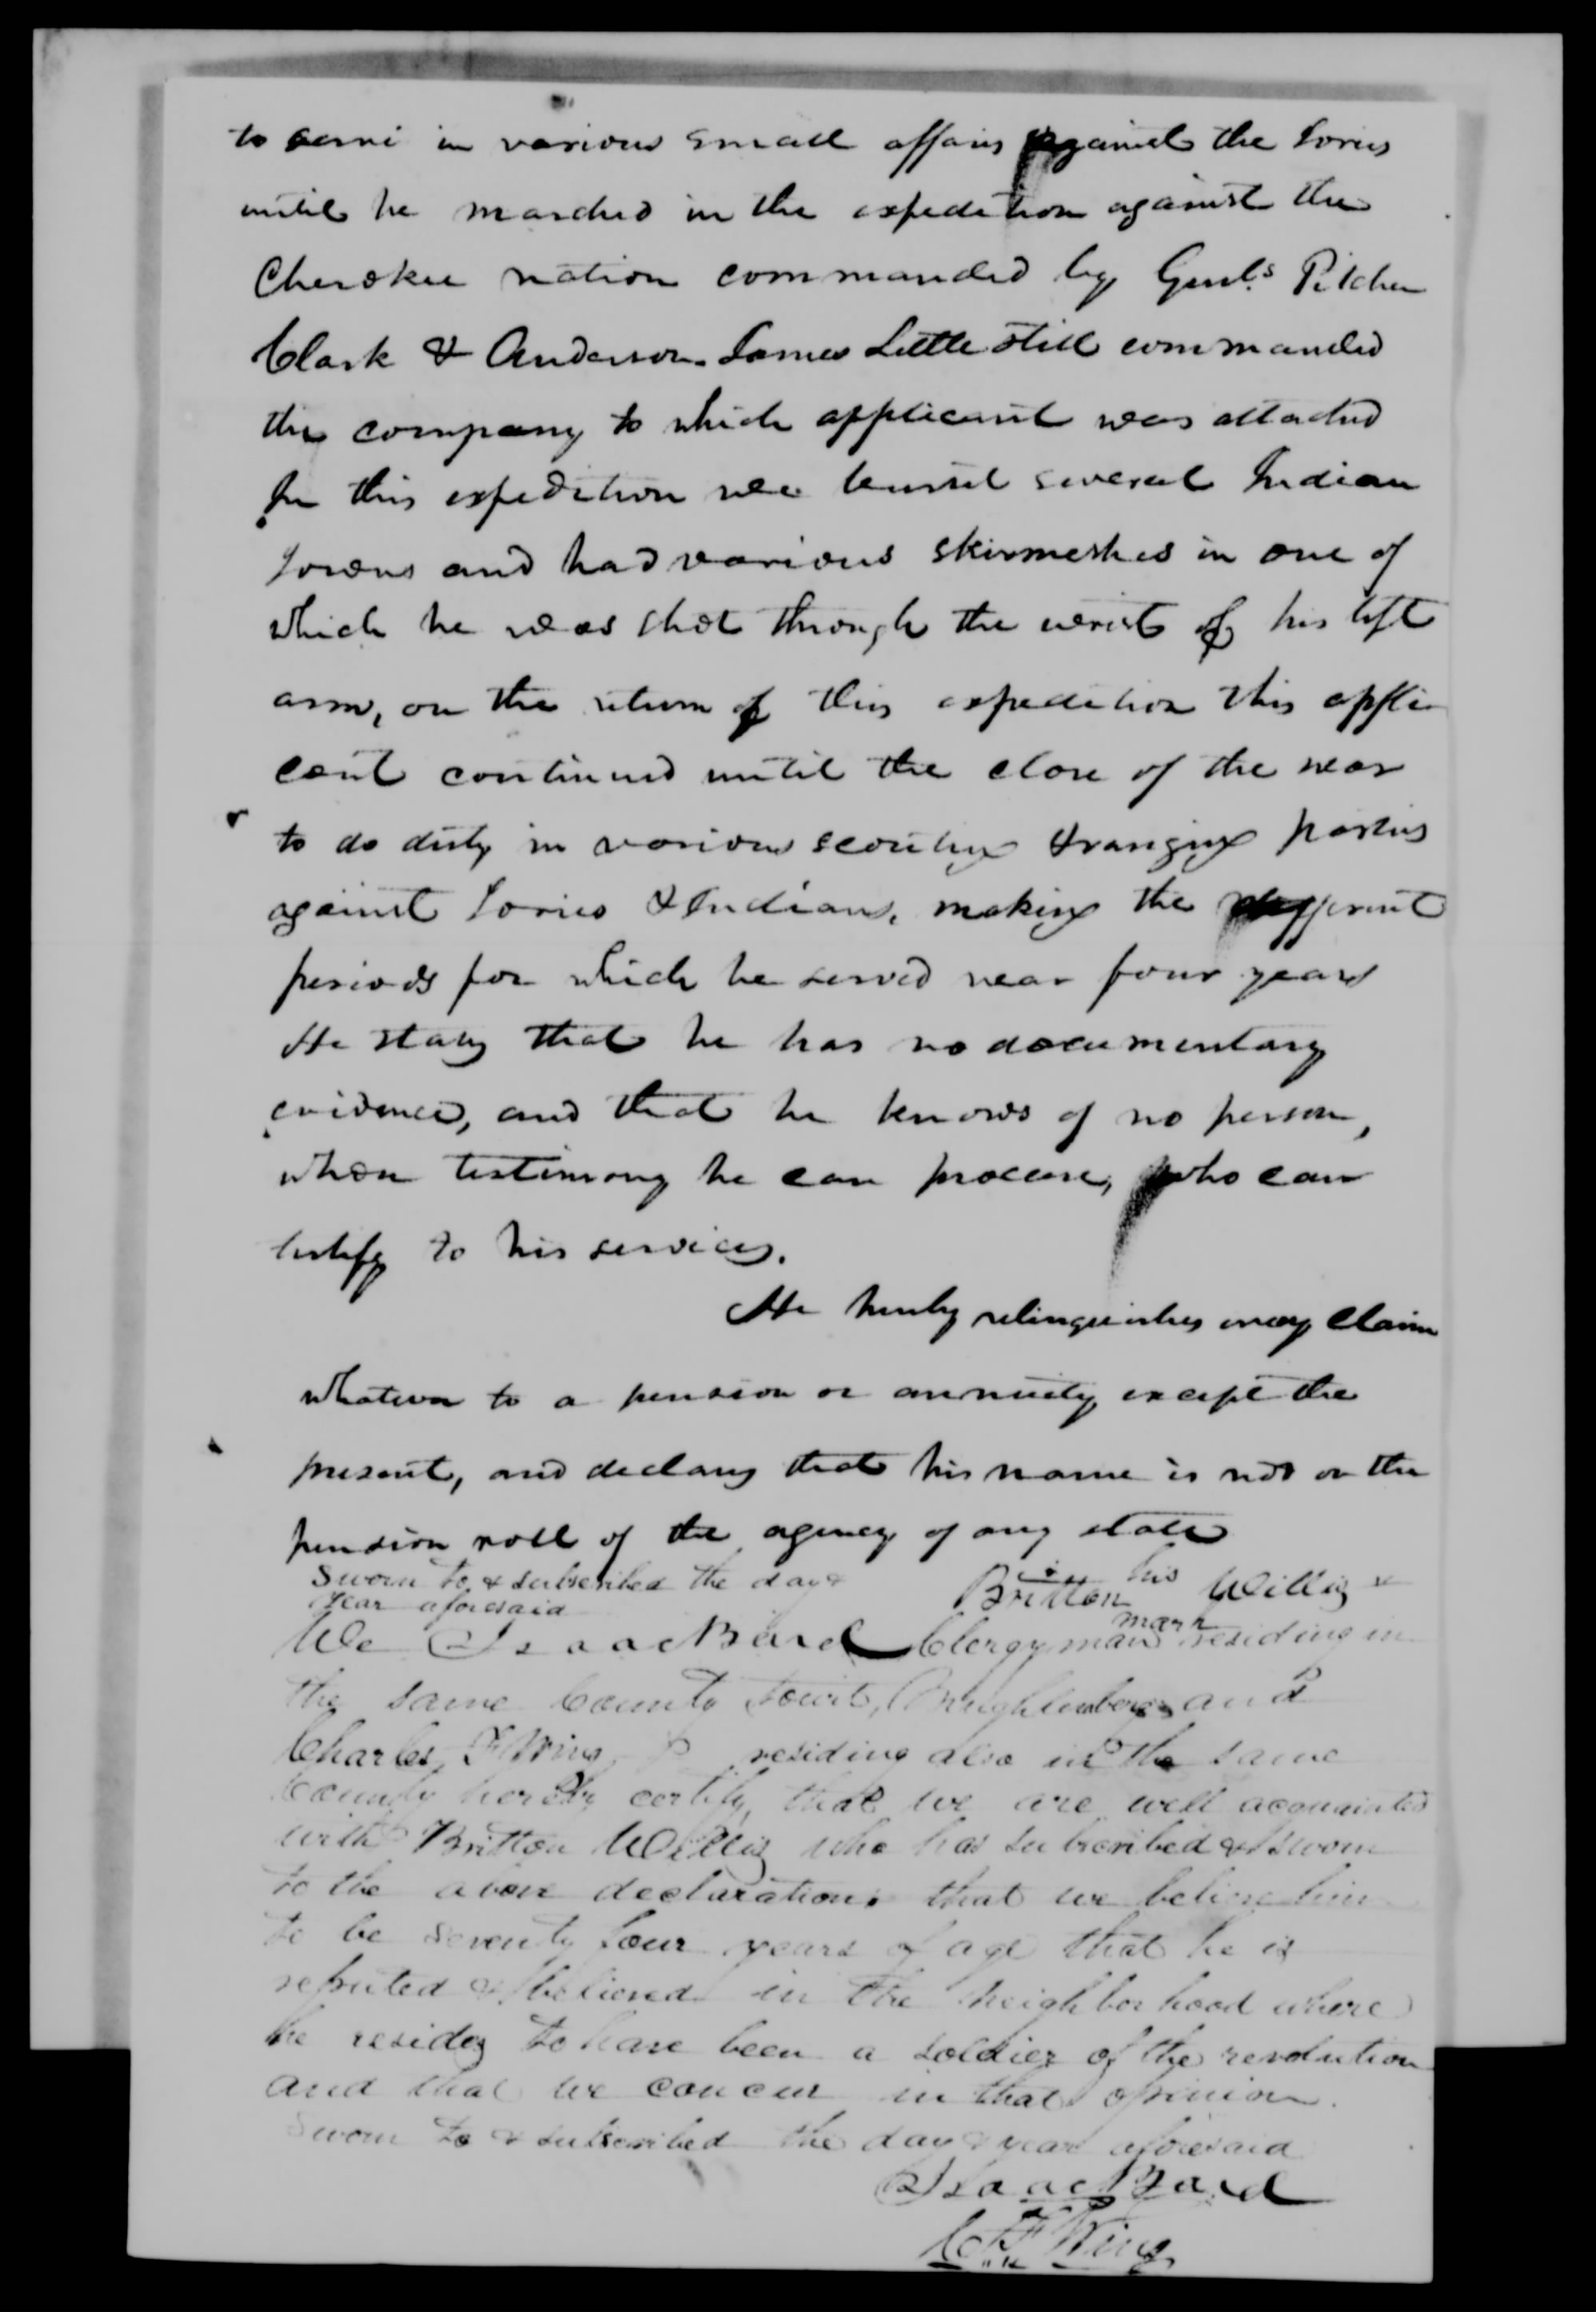 to serve in various small affairs against the Tories
until he marched in the expedition against the
Cherokee nation commanded by Genl.s Pitcher
Clark & Anderson. James Little still commanded
the company to which applicant was attached
In this expedition we burnt several Indian
Towns and had various skirmeshes in one of
which he was shot through the wrist of his left
arm, on the return of this expedition this appli
cant continued until the close of the war
to do duty in various scouting & ranging parties
against Tories & Indians, making the different
periods for which he served near four years
He states that he has no documentary
evidence, and that he knows of no person,
whose testimony he can procure, who can
testify to his services.
He hereby relinquishes every claim
whatever to a pension or annuity except the
present, and declares that his name is not on the
pension roll of the agency of any state
Sworn to & subscribed the day &
year aforesaid
Britton his Willis
mark
We Isaac Bard Clergyman residing in
the same County towit, Muhlenberg and
Charles F Wing residing also in the same
County hereby certify, that we are well acquainted
with Britton Willis who has subscribed & sworn
to the above declaration, that we believe him
to be seventy four years of age that he is
reputed & believed in the neighborhood where
he resides to have been a soldier of the revolution
and that we concur in that opinion.
Sworn to & subscribed the day & year aforesaid
Isaac Bard
C. F. Wing